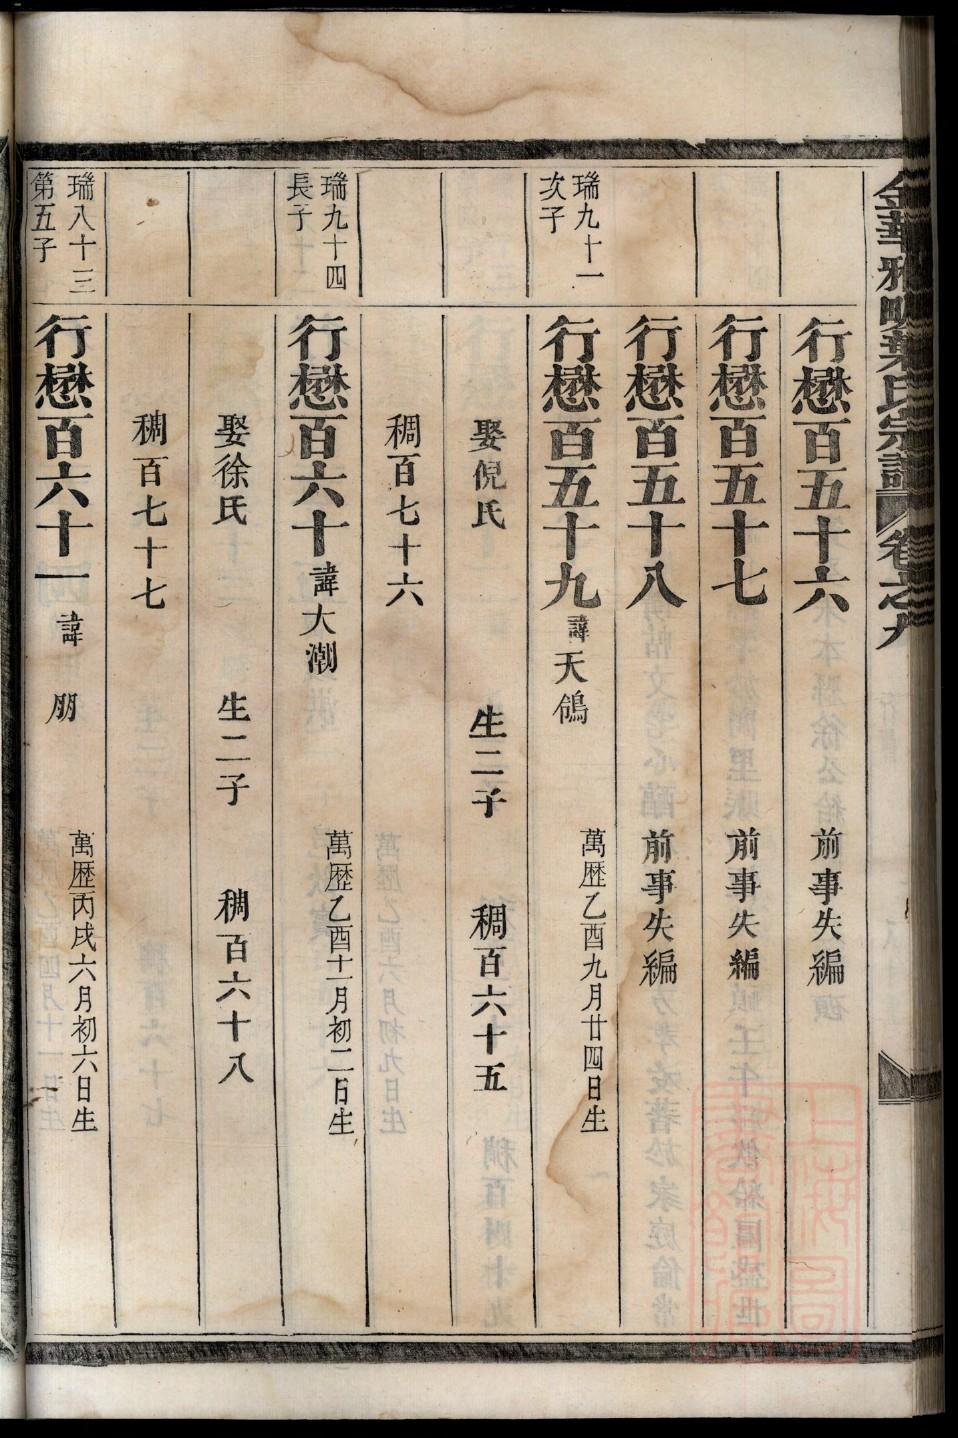 金華雅畈葉氏宗譜 卷之九
行懋百五十六 前事失編
行懋百五十七 前事失編
行懋百五十八 前事失編
瑞九十一
次子
行懋百五十九 諱天鵮 萬歷乙酉九月廿四日生
娶倪氏 生二子 稠百六十五
稠百七十六
瑞九十四
長子
行懋百六十 諱大潮 萬歷乙酉十一月初二日生
娶徐氏 生二子 稠百六十八
稠百七十七
瑞八十三
第五子
行懋百六十一 諱朋 萬歷丙戌六月初六日生